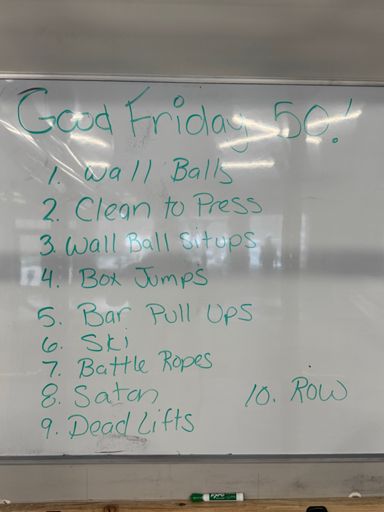 Good Friday 50!
1. Wall Balls
2. Clean to Press
3. Wall Ball Situps
4. Box Jumps
5. Bar Pull Ups
6. Ski
7. Battle Ropes
8. Satan
9. Dead Lifts
10. Row